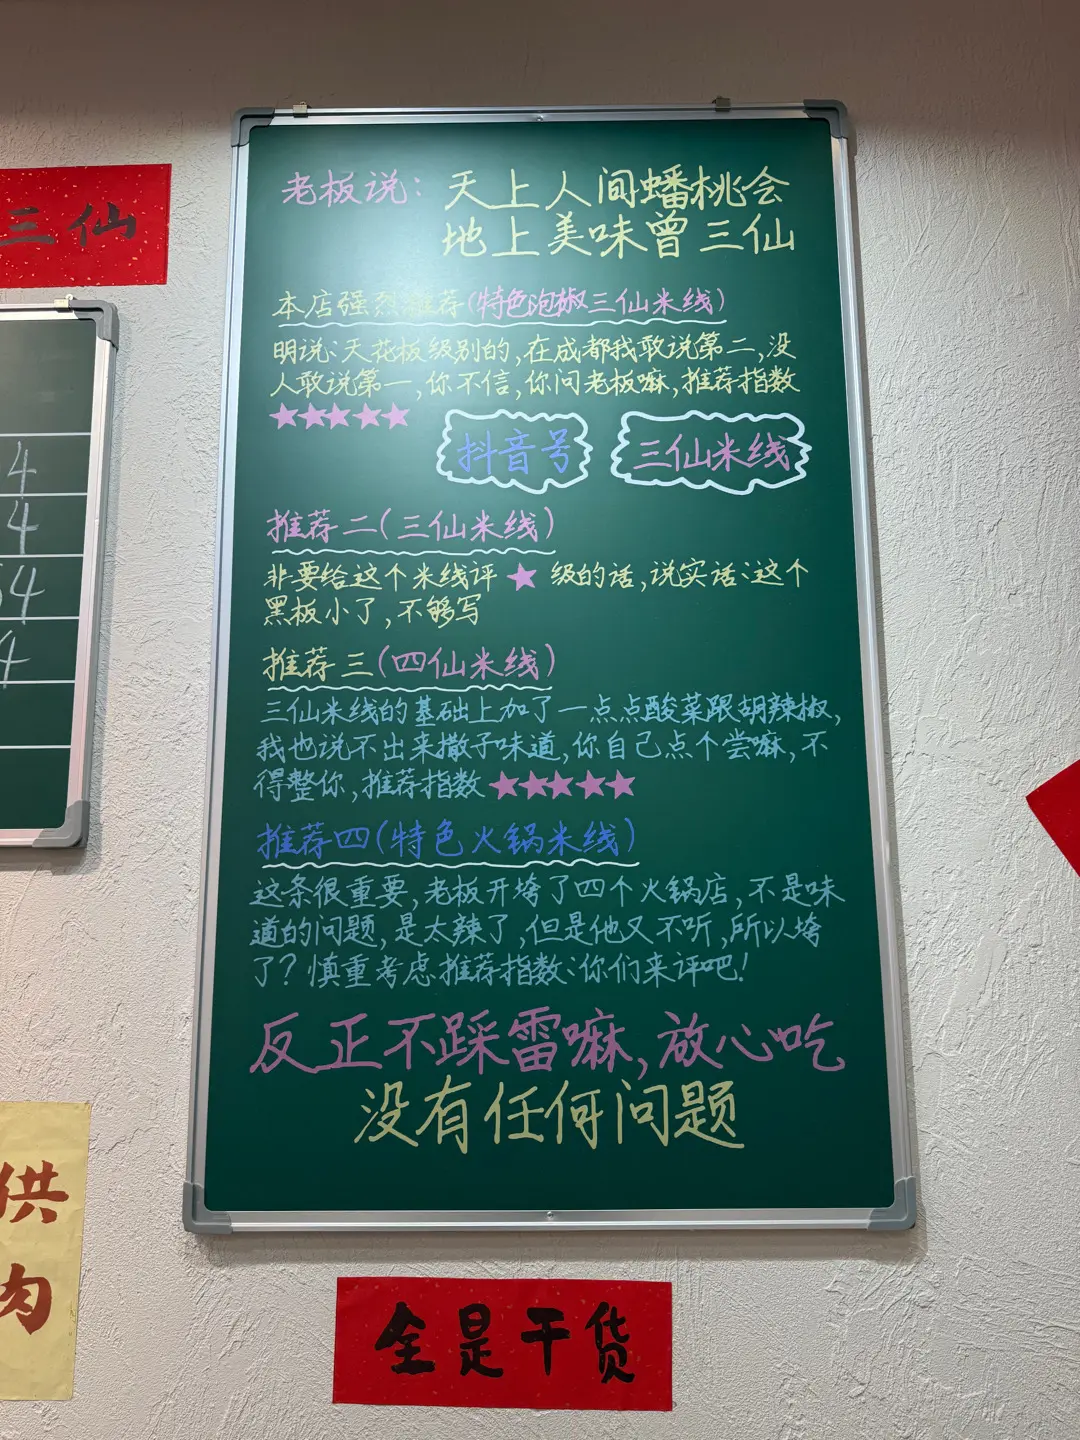 三仙
4
4
54
4
供
肉
老板说：天上人间蟠桃会
地上美味曾三仙
本店强烈推荐(特色泡椒三仙米线)
明说：天花板级别的,在成都我敢说第二,没
人敢说第一,你不信,你问老板嘛,推荐指数
★★★★★
抖音号 三仙米线
推荐二(三仙米线)
非要给这个米线评★级的话,说实话：这个
黑板小了,不够写
推荐三(四仙米线)
三仙米线的基础上加了一点点酸菜跟胡辣椒,
我也说不出来撒子味道,你自己点个尝嘛,不
得整你,推荐指数★★★★★
推荐四(特色火锅米线)
这条很重要,老板开垮了四个火锅店,不是味
道的问题,是太辣了,但是他又不听,所以垮
了?慎重考虑推荐指数：你们来评吧!
反正不踩雷嘛,放心吃
没有任何问题
全是干货